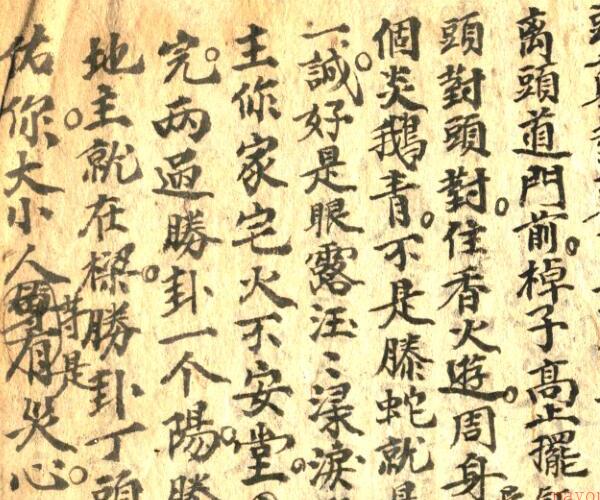 离頭道門前。棹子高上擺
頭對頭對住香火。遊周身
個炎鵝青。不是滕蛇就是
一誠。好是眼露汪〻淚淚
主你家宅火不安堂。
完。两逥勝卦一个陽。勝
地主就在樑。勝卦丁頭
佑你。大小人等是有災心。